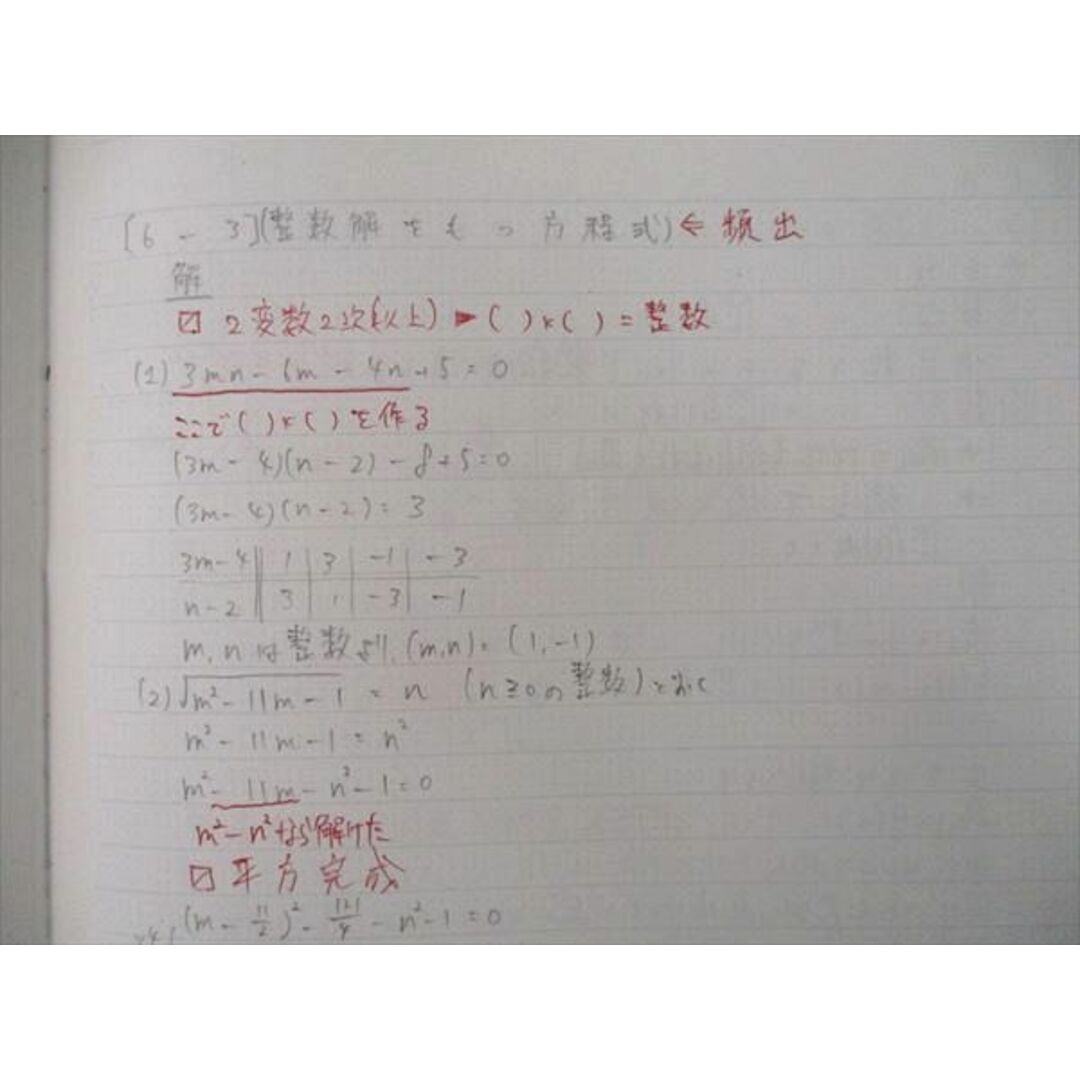 [6-3](整数解をもつ方程式) ← 頻出
解
☑ 2変数2次(以上) ► ( )×( ) = 整数
(1) 3mn - 6m - 4n + 5 = 0
ここで( )×( )を作る
(3m - 4)(n - 2) - 8 + 5 = 0
(3m - 4)(n - 2) = 3
3m-4 | 1 | 3 | -1 | -3
n-2 | 3 | 1 | -3 | -1
m, nは整数より, (m,n) = (1, -1)
(2) √m² - 11m - 1 = n (n≧0の整数)とおく
m² - 11m - 1 = n²
m² - 11m - n² - 1 = 0
m² - n²なら解けた
☑ 平方完成
(m - 11/2)² - 121/4 - n² - 1 = 0